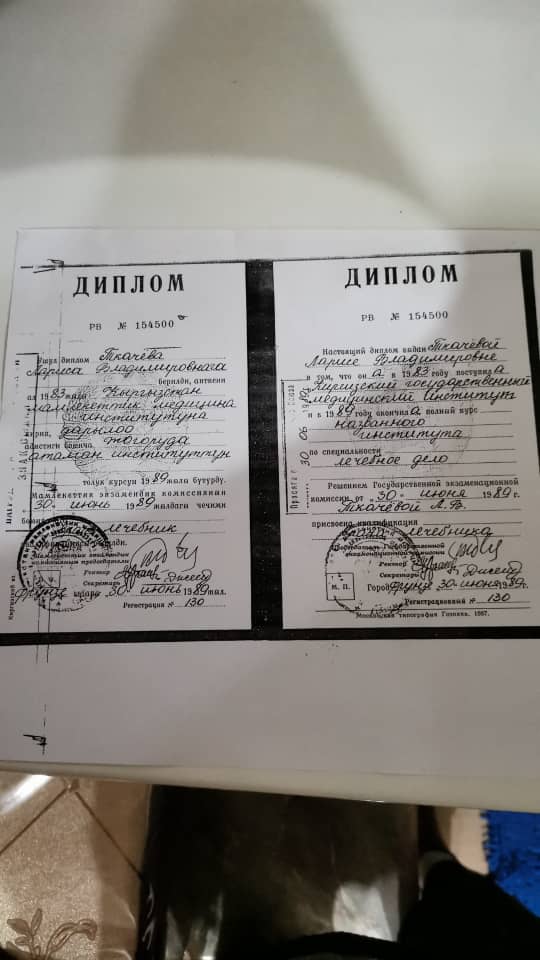 ДИПЛОМ
РВ № 154500
Ушул диплом Ткачева
Лариса Владимировнага
берилди, анткени
ал 1983 жылы Кыргызстан
мамлекеттик медицина
институтуна
кирип,
дарылоо
адистиги боюнча жогоруда
аталган институттун
толук курсун 1989 жылы бүтүрдү.
Мамлекеттик экзамендик комиссиянын
30 июнь 1989 жылдагы чечими
лечебник
Мамлекеттик экзамендик
комиссиянын председатели
Ректор
Секретарь
Фрунзе шаары 30 июнь 1989 жыл.
Регистрация № 130
ДИПЛОМ
РВ № 154500
Настоящий диплом выдан Ткачевой
Ларисе Владимировне
в том, что она в 1983 году поступила
в Киргизский государственный
медицинский институт
и в 1989 году окончила полный курс
названного
института
по специальности
лечебное дело
Решением Государственной экзаменационной
комиссии от "30" июня 1989 г.
Ткачевой Л.В.
присвоена квалификация
врача-лечебника
Председатель Государственной
экзаменационной комиссии
Ректор
Секретарь
М. П.
Город Фрунзе 30 июня 1989г.
Регистрационный № 130
Московская типография Гознака. 1987.